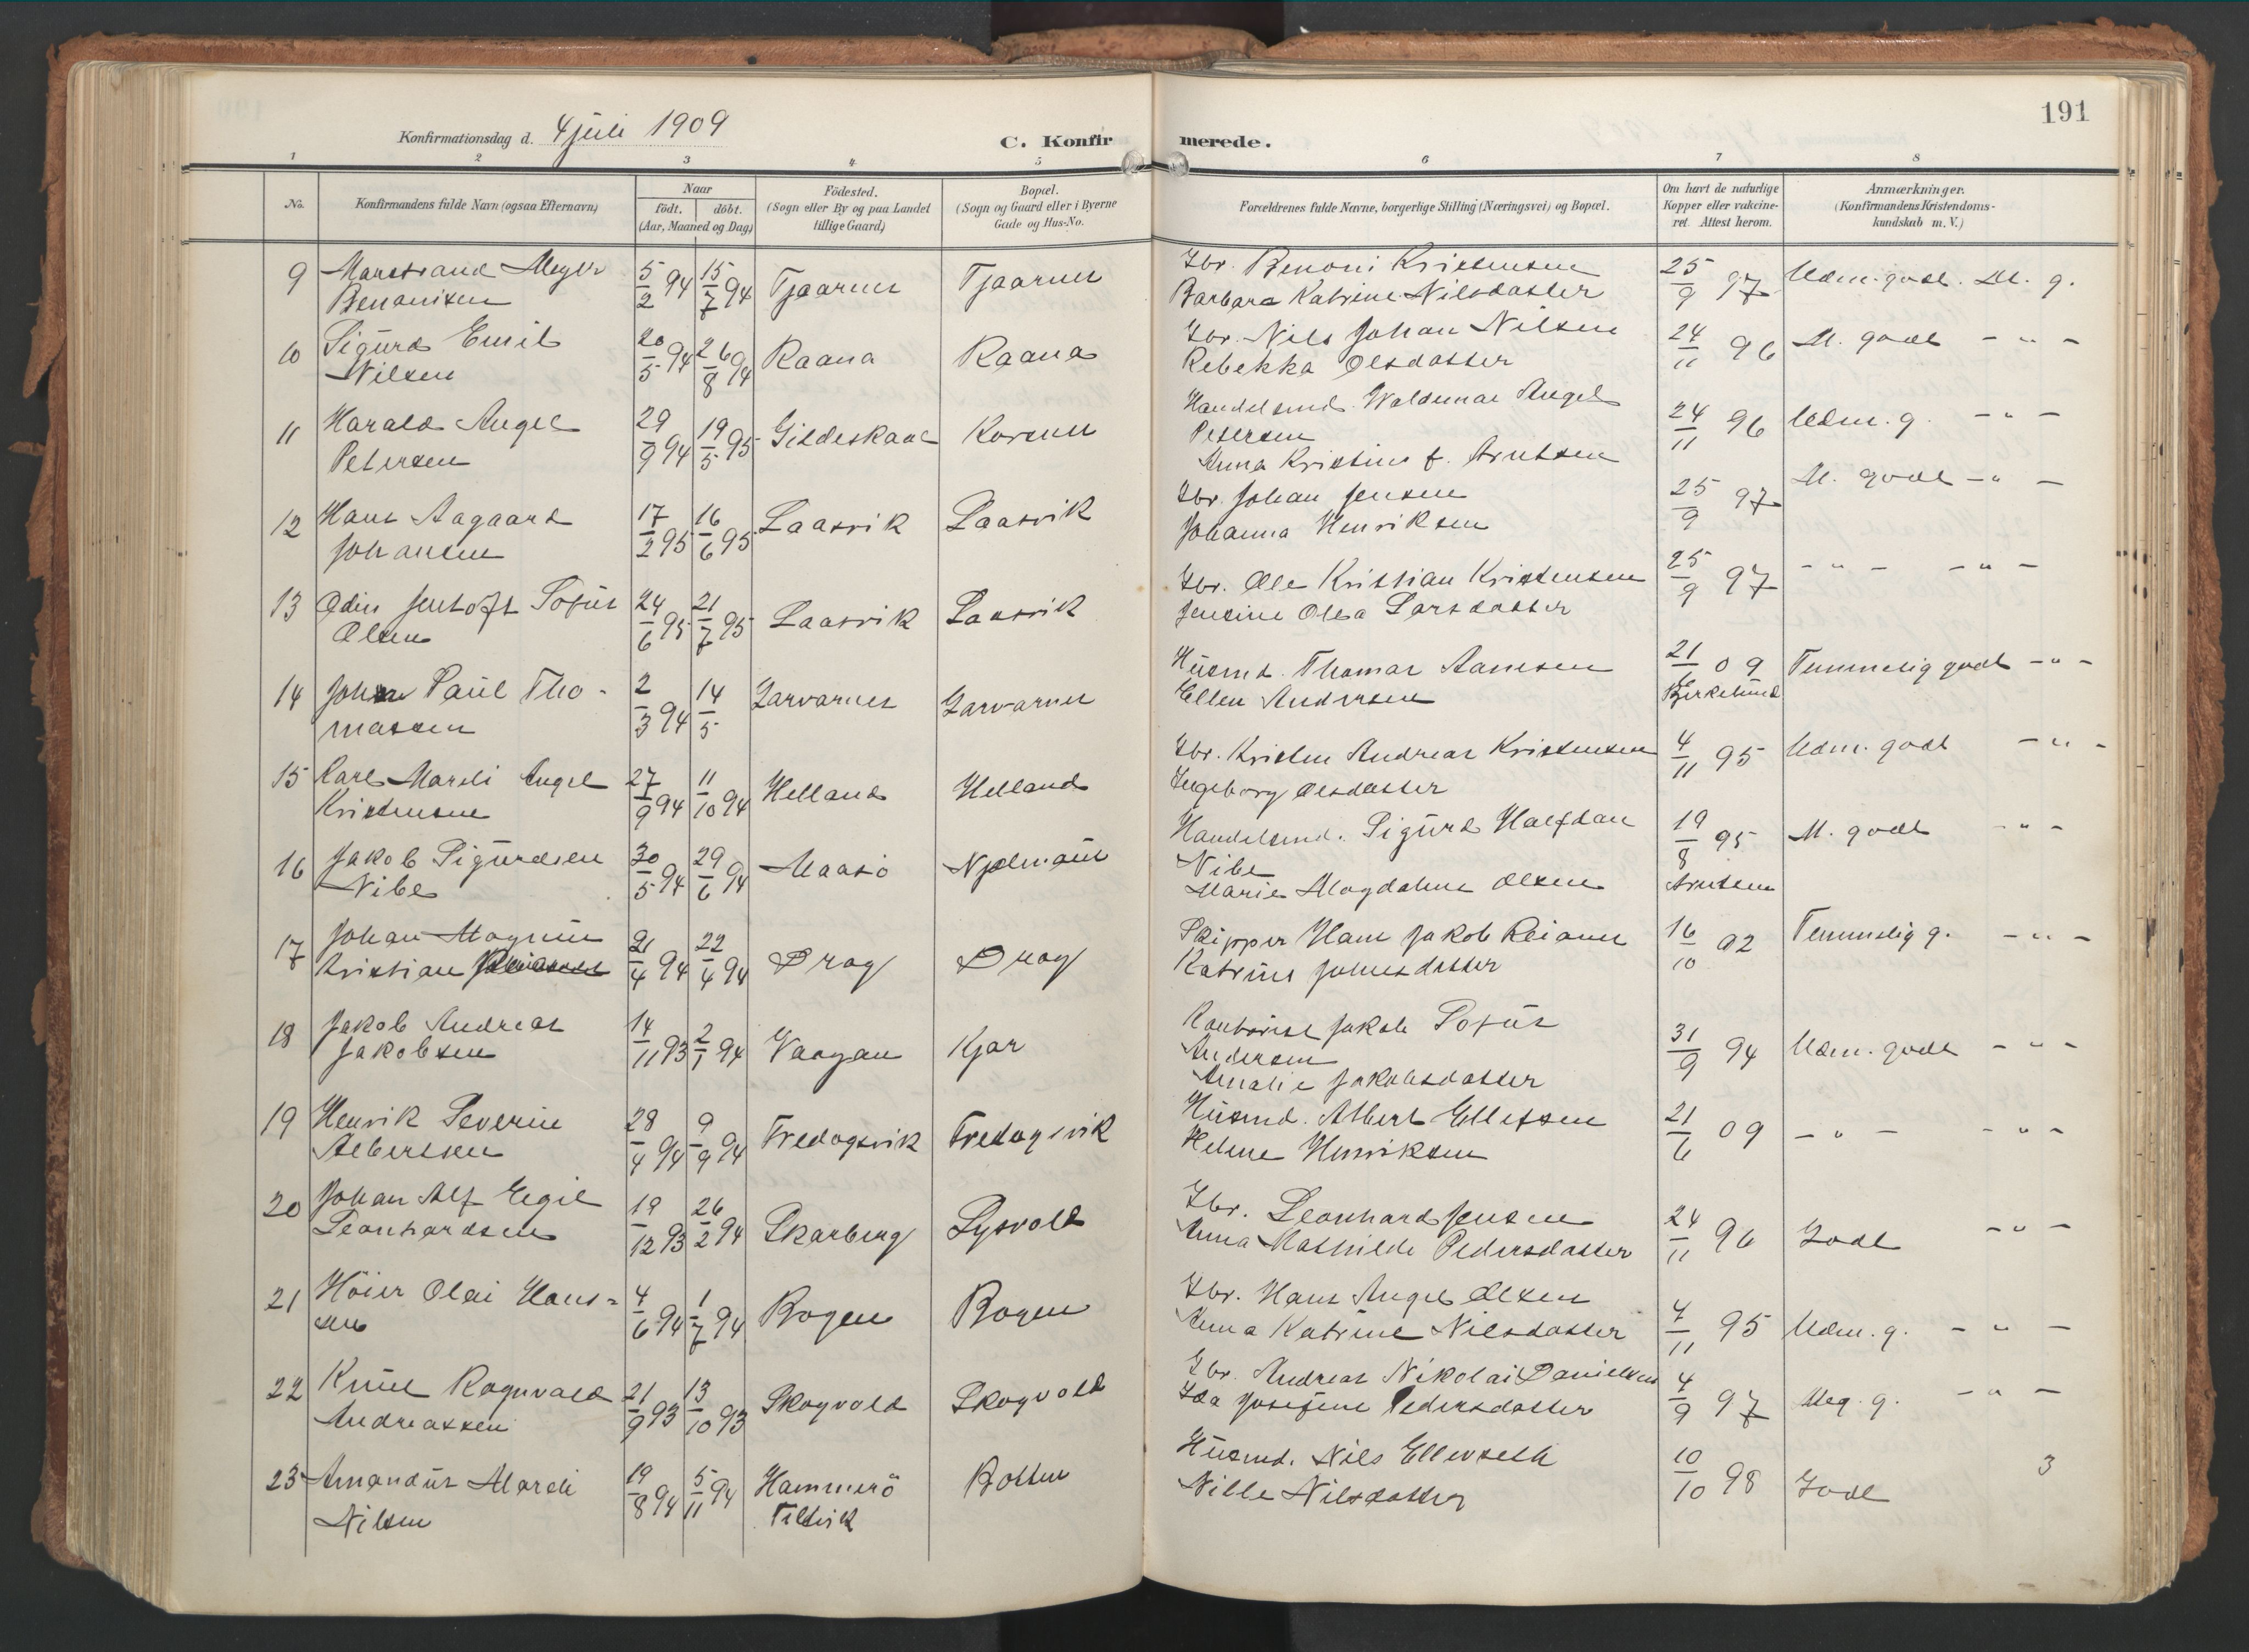 191
Konfirmationsdag d. 4 juli 1909
C. Konfirmerede.
1 2 3 4 5 6 7 8
No.
Konfirmandens fulde Navn (ogsaa Efternavn)
Naar
født. døbt.
(Aar, Maaned og Dag)
Födested.
(Sogn eller By og paa Landet
tillige Gaard)
Bopæl.
(Sogn og Gaard eller i Byerne
Gade og Hus-No.
Forældrenes fulde Navne, borgerlige Stilling (Næringsvei) og Bopæl.
Om havt de naturlige
Kopper eller vakcine-
ret. Attest herom.
Anmærkninger.
(Konfirmandens Kristendoms-
kundskab m. V.)
9 Marstrand Meyer 5/2 94 15/7 94 Tjaarnes Tjaarnes Gbr. Benoni Kristensen 25/9 97 Udm. godt. M. g.
Benonisen Barbara Katrine Nilsdatter
10 Sigurd Emil 20/5 94 26/8 94 Raana Raana Gbr. Nils Johan Nilsen 24/11 96 M. godt - " -
Nilsen Rebekka Olsdatter
11 Harald Angel 29/9 94 19/5 95 Gildeskaal Korsnes Handelsmd. Waldemar Angel 24/11 96 Udm. g. - " -
Petersen Petersen
Anna Kristine f. Arntsen
12 Hans Aagaard 17/2 95 16/6 95 Laasvik Laasvik Gbr. Johan Jensen 25/9 97 M. godt - " -
Johansen Johanna Henriksen
13 Odin Jentoft Sofus 24/6 95 21/7 95 Laasvik Laasvik Gbr. Ole Kristian Kristensen 25/9 97 - " - - " -
Olsen Jensine Olea Larsdatter
14 Johan Paul Tho- 2/3 94 14/5 Zarvarnes Zarvarnes Husmd. Thomas Aamosen 21/6 09 Temmelig godt - " -
massen Ellen Andersen Bjerkelund
15 Karl Marsli Angel 27/9 94 11/10 94 Helland Helland Gbr. Kristen Andreas Kristensen 4/11 95 Udm. godt - " -
Kristensen Ingeborg Olsdatter
16 Jakob Sigurdsen 30/5 94 29/6 94 Maasö Njelmaus Handelsmd. Sigurd Halfdan 19/8 95 M. godt - " -
Nibe Nibe
Marie Magdalene Olsen Arntsen
17 Johan Magnus 21/4 94 22/4 94 Drag Drag Skipper Hans Jakob Reianus 16/10 02 Temmelig g. - " -
Kristian Katrine Johnsdatter
18 Jakob Andreas 14/11 93 2/1 94 Vaagan Kjær Kontorist Jakob Sofus 31/9 94 Udm. godt - " -
Jakobsen Andersen
Amalie Jakobsdatter
19 Henrik Severin 28/4 94 9/9 94 Fredagsvik Fredagsvik Husmd. Albert Ellefsen 21/6 09 - " - - " -
Albertsen Helene Henriksen
20 Johan Alf Eegil 19/12 93 26/2 94 Skarberg Lysvold Gbr. Leonhard Jensen 24/11 96 Godt - " -
Leonhardsen Anna Mathilde Pedersdatter
21 Höier Olai Hans= 4/6 94 1/7 94 Bogen Bogen Gbr. Hans Angel Olsen 4/11 95 Udm. g. - " -
sen Anna Katrine Nilsdatter
22 Knut Rognvald 21/9 93 13/10 93 Skogvold Skogvold Gbr. Andreas Nikolai Danielsen 4/9 97 Meg. g. - " -
Andreassen Ida Josefine Pedersdatter
23 Amandus Mareli 19/8 94 5/11 94 Hammerö Botten Husmd. Nils Ellevseth 10/10 98 Godt 3
Nilsen Tiltvik Nille Nilsdatter